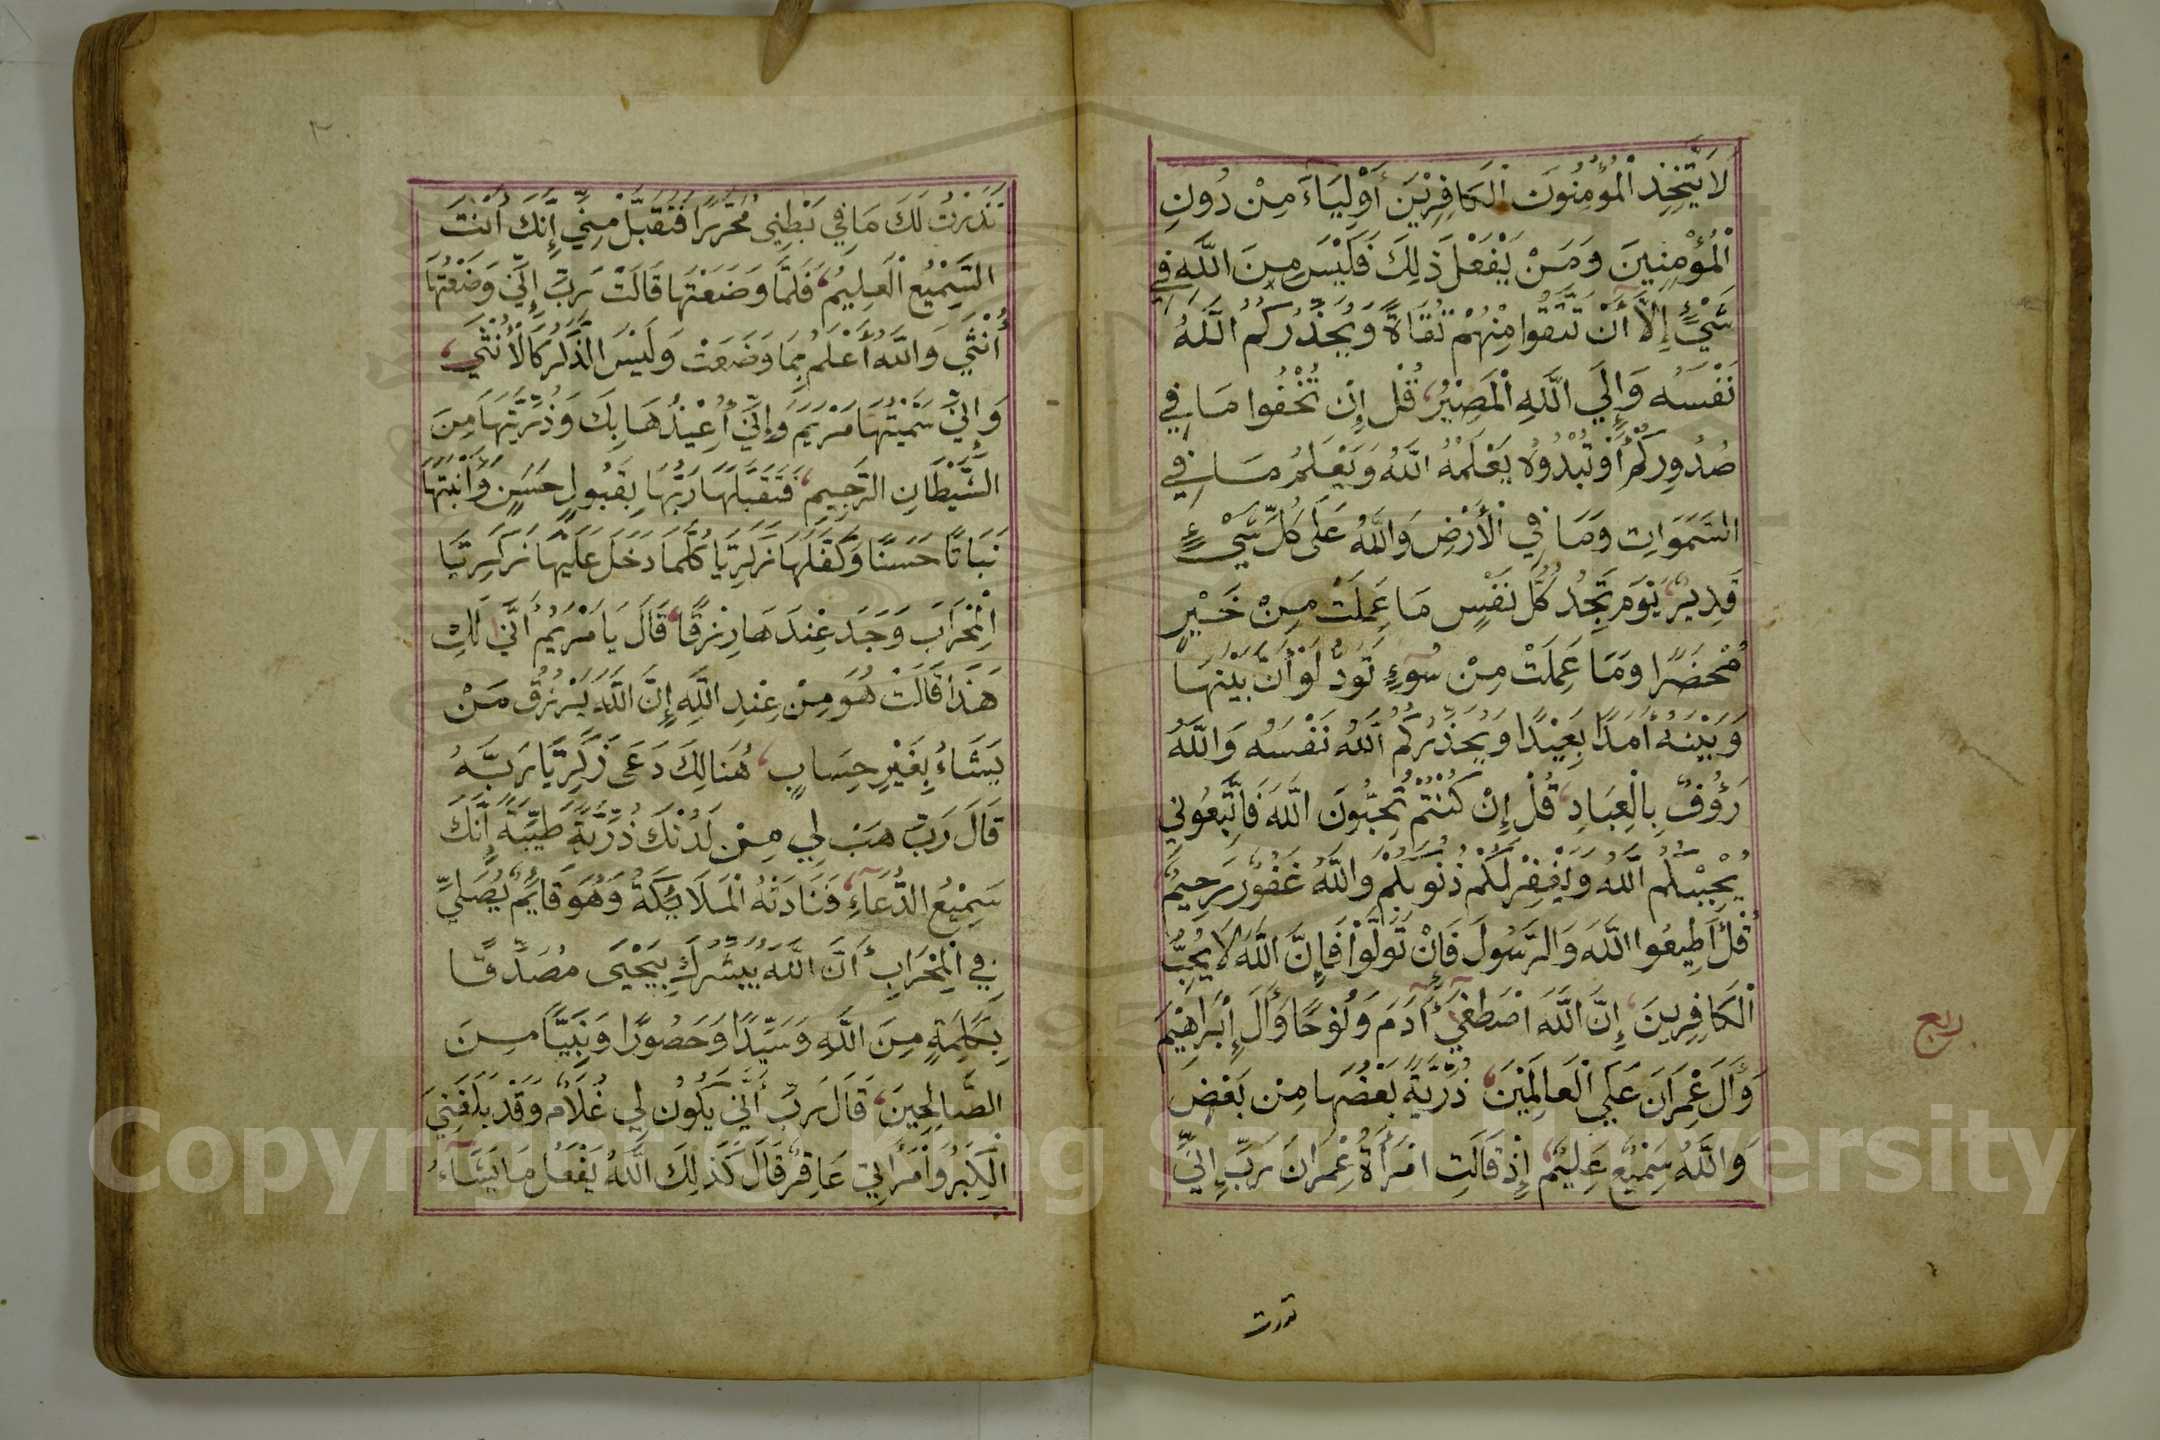 لَا يَتَّخِذِ الْمُؤْمِنُونَ الْكَافِرِيْنَ أَوْلِيَاءَ مِنْ دُونِ
الْمُؤْمِنِينَ وَمَنْ يَفْعَلْ ذَلِكَ فَلَيْسَ مِنَ اللَّهِ فِي
شَيْءٍ إِلَّا أَنْ تَتَّقُوا مِنْهُمْ تُقَاةً وَيُحَذِّرُكُمُ اللَّهُ
نَفْسَهُ وَإِلَي اللَّهِ الْمَصِيْرُ قُلْ إِنْ تُخْفُوا مَا فِي
صُدُورِكُمْ أَوْ تُبْدُوْهُ يَعْلَمْهُ اللَّهُ وَيَعْلَمُ مَا فِي
السَّمَوَاتِ وَمَا فِي الْأَرْضِ وَاللَّهُ عَلَى كُلِّ شَيْءٍ
قَدِيرٌ يَوْمَ تَجِدُ كُلُّ نَفْسٍ مَا عَمِلَتْ مِنْ خَيْرٍ
مُحْضَرًا وَمَا عَمِلَتْ مِنْ سُوءٍ تَوَدُّ لَوْ أَنَّ بَيْنَهَا
وَبَيْنَهُ أَمَدًا بَعِيْدًا وَيُحَذِّرُكُمُ اللَّهُ نَفْسَهُ وَاللَّهُ
رَؤُفٌ بِالْعِبَادِ قُلْ إِنْ كُنْتُمْ تُحِبُّونَ اللَّهَ فَاتَّبِعُونِي
يُحْبِبْكُمُ اللَّهُ وَيَغْفِرْ لَكُمْ ذُنُوبَكُمْ وَاللَّهُ غَفُورٌ رَحِيمٌ
قُلْ أَطِيعُوا اللَّهَ وَالرَّسُولَ فَإِنْ تَوَلَّوْا فَإِنَّ اللَّهَ لَا يُحِبُّ
الْكَافِرِينَ إِنَّ اللَّهَ اصْطَفَيٓ أَدَمَ وَنُوحًا وَأَلَ إِبْرَاهِيْمَ
وَأَلَ عِمْرَانَ عَلَي الْعَالَمِيْنَ ذُرِّيَّةً بَعْضُهَا مِنْ بَعْضٍ
وَاللَّهُ سَمِيْعٌ عَلِيْمٌ إِذْ قَالَتِ امْرَأَةُ عِمْرَانَ رَبِّ إِنِّي
ربع
نذرت
٢٠
نَذَرْتُ لَكَ مَا فِي بَطْنِي مُحَرَّرًا فَتَقَبَّلْ مِنِّي إِنَّكَ أَنْتَ
السَّمِيْعُ الْعَلِيمُ فَلَمَّا وَضَعَتْهَا قَالَتْ رَبِّ إِنِّي وَضَعْتُهَا
أُنْثَي وَاللَّهُ أَعْلَمُ بِمَا وَضَعَتْ وَلَيْسَ الذَّكَرُ كَالْأُنْثَي
وَإِنِّيْ سَمَّيْتُهَا مَرْيَمَ وَإِنِّي أُعِيْذُهَا بِكَ وَذُرِّيَّتَهَا مِنَ
الشَّيْطَانِ الرَّجِيمِ فَتَقَبَّلَهَا رَبُّهَا بِقَبُولٍ حَسَنٍ وَأَنْبَتَهَا
نَبَاتًا حَسَنًا وَكَفَّلَهَا زَكَرِيَّا كُلَّمَا دَخَلَ عَلَيْهَا زَكَرِيَّا
الْمِحْرَابَ وَجَدَ عِنْدَهَا رِزْقًا قَالَ يَا مَرْيَمُ أَنَّي لَكِ
هَذَا قَالَتْ هُوَ مِنْ عِنْدِ اللَّهِ إِنَّ اللَّهَ يَرْزُقُ مَنْ
يَشَاءُ بِغَيْرِ حِسَابٍ هُنَالِكَ دَعَى زَكَرِيَّا رَبَّهُ
قَالَ رَبِّ هَبْ لِي مِنْ لَدُنْكَ ذُرِّيَّةً طَيِّبَةً إِنَّكَ
سَمِيْعُ الدُّعَآءِ فَنَادَتْهُ الْمَلَائِكَةُ وَهُوَ قَايِمٌ يُصَلِّي
فِي الْمِحْرَابِ أَنَّ اللَّهَ يُبَشِّرُكَ بِيَحْيَى مُصَدِّقًا
بِكَلِمَةٍ مِنَ اللَّهِ وَسَيِّدًا وَحَصُورًا وَنَبِيًّا مِنَ
الصَّالِحِينَ قَالَ رَبِّ أَنَّي يَكُونُ لِي غُلَامٌ وَقَدْ بَلَغَنِيَ
الْكِبَرُ وَامْرَأَتِي عَاقِرٌ قَالَ كَذَلِكَ اللَّهُ يَفْعَلُ مَا يَشَآءُ
Copyright © King Saud University